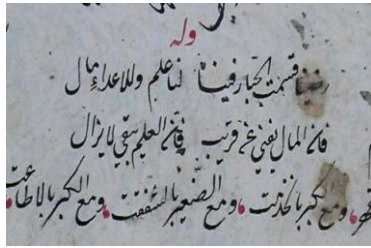 وله
رضينا قسمت الجبار فينا لنا علم وللاعداء مال
فان المال يفنى عن قريب فان العلم يبقى لا يزال
ومع الكبر بالخدمت ومع الصغير بالشفقت ومع الكبر بالاطاعت